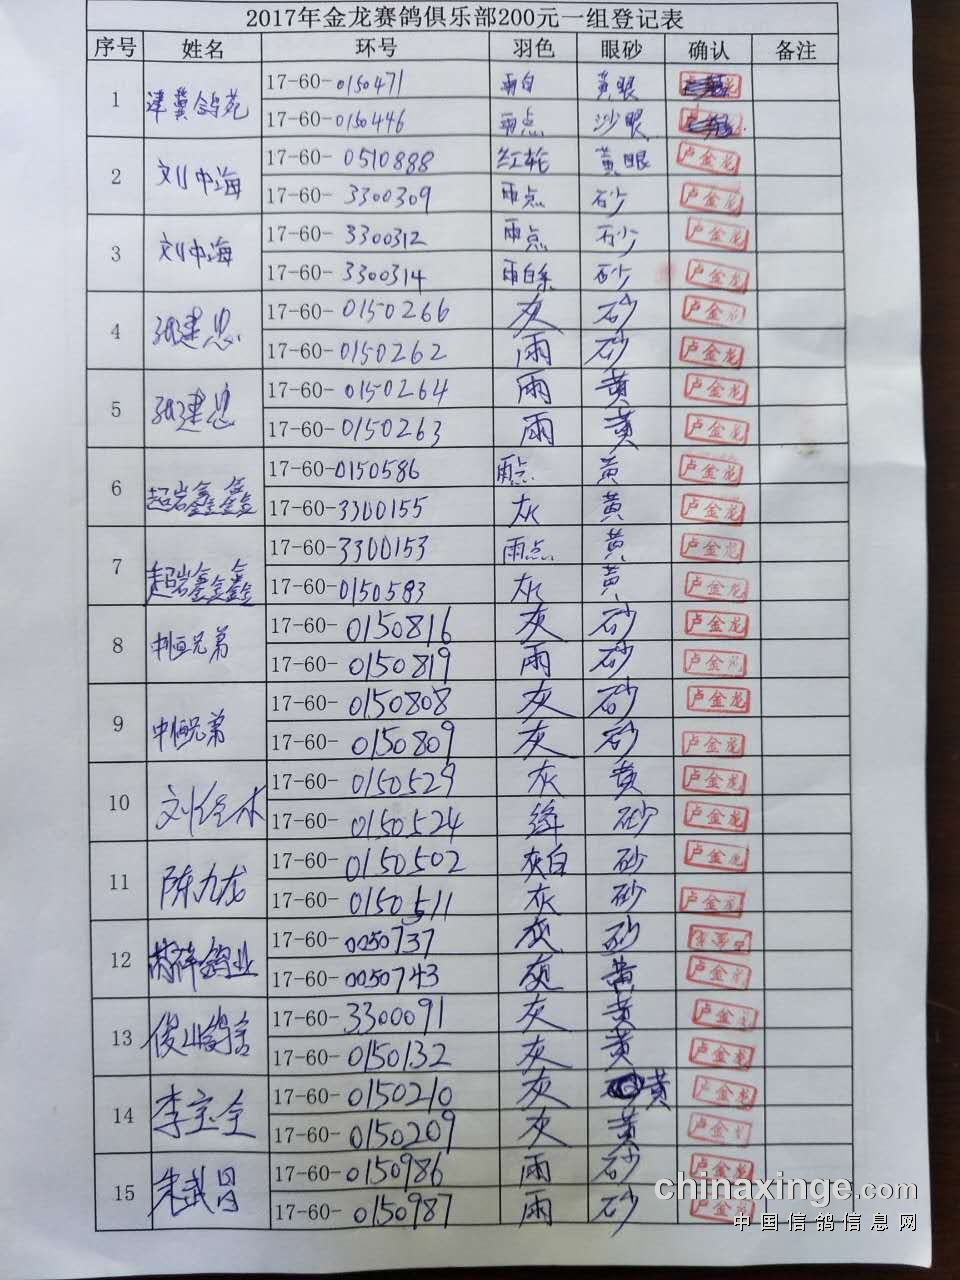 2017年金龙赛鸽俱乐部200元一组登记表
序号 姓名 环号 羽色 眼砂 确认 备注
1 津冀鸽苑 17-60-0150471 雨白 黄眼
17-60-0150446 雨点 沙眼
2 刘中海 17-60-0510888 红轮 黄眼 卢金龙
17-60-3300309 雨点 砂 卢金龙
3 刘中海 17-60-3300312 雨点 砂 卢金龙
17-60-3300314 雨白条 砂 卢金龙
4 张建忠 17-60-0150266 灰 砂 卢金龙
17-60-0150262 雨 砂 卢金龙
5 张建忠 17-60-0150264 雨 黄 卢金龙
17-60-0150263 雨 黄 卢金龙
6 超岩鑫鑫 17-60-0150586 雨点 黄 卢金龙
17-60-3300155 灰 黄 卢金龙
7 超岩鑫鑫 17-60-3300153 雨点 黄 卢金龙
17-60-0150583 灰 黄 卢金龙
8 中恒兄弟 17-60-0150816 灰 砂 卢金龙
17-60-0150819 雨 砂 卢金龙
9 中恒兄弟 17-60-0150808 灰 砂 卢金龙
17-60-0150809 灰 砂 卢金龙
10 刘 17-60-0150529 灰 黄 卢金龙
17-60-0150524 绛 砂 卢金龙
11 陈九龙 17-60-0150502 灰白 砂 卢金龙
17-60-0150511 灰 砂 卢金龙
12 祥鸽业 17-60-0050737 灰 砂
17-60-0050743 灰 黄 卢金龙
13 俊山鸽舍 17-60-3300091 灰 黄 卢金龙
17-60-0150132 灰 黄 卢金龙
14 李宝全 17-60-0150210 灰 黄 卢金龙
17-60-0150209 灰 黄 卢金龙
15 朱武昌 17-60-0150986 雨 砂 卢金龙
17-60-0150987 雨 砂 卢金龙
chinaxinge.com
中国信鸽信息网